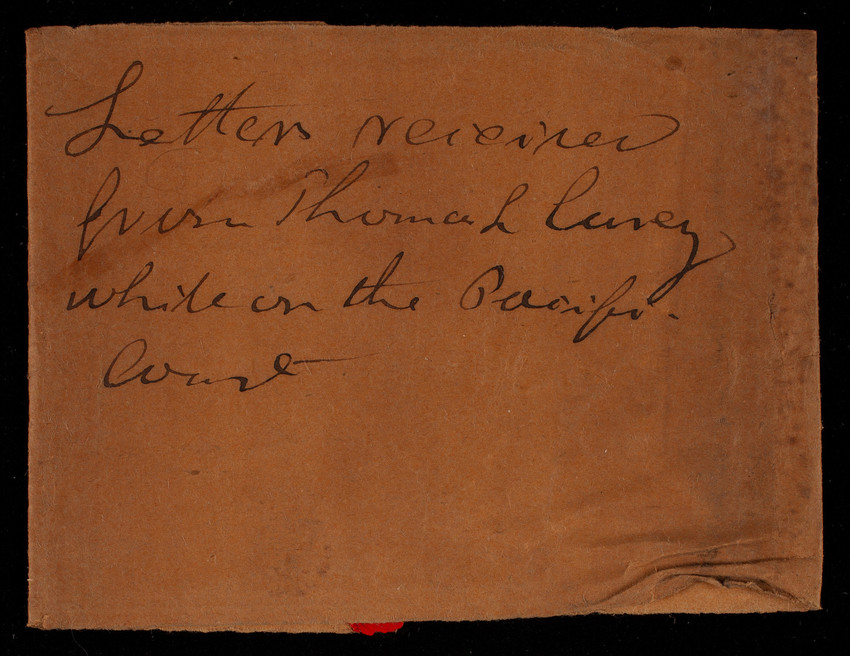 Letters received
from Thomas L Casey
while on the Pacific
Coast